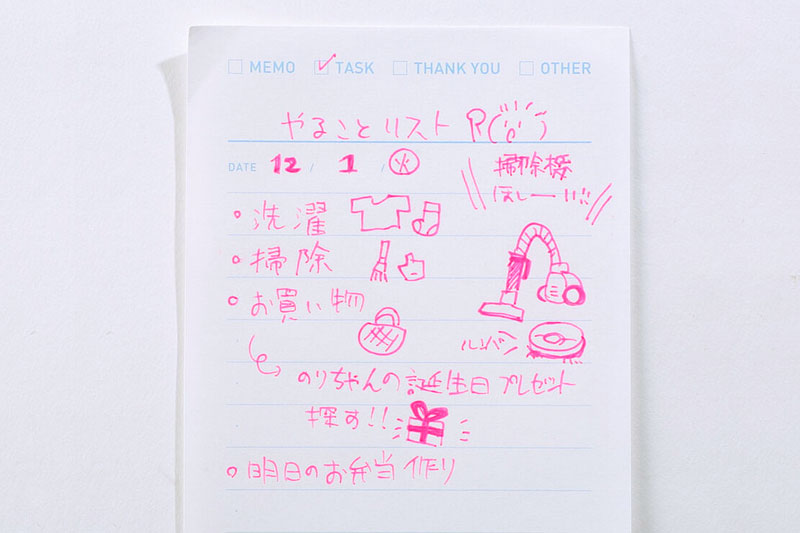 MEMO TASK THANK YOU OTHER
やることリスト
DATE 12 / 1 / 火
掃除機
ほしーい!!
洗濯
掃除
お買い物
ルンバ
のりちゃんの誕生日プレゼント
探す!!
明日のお弁当作り